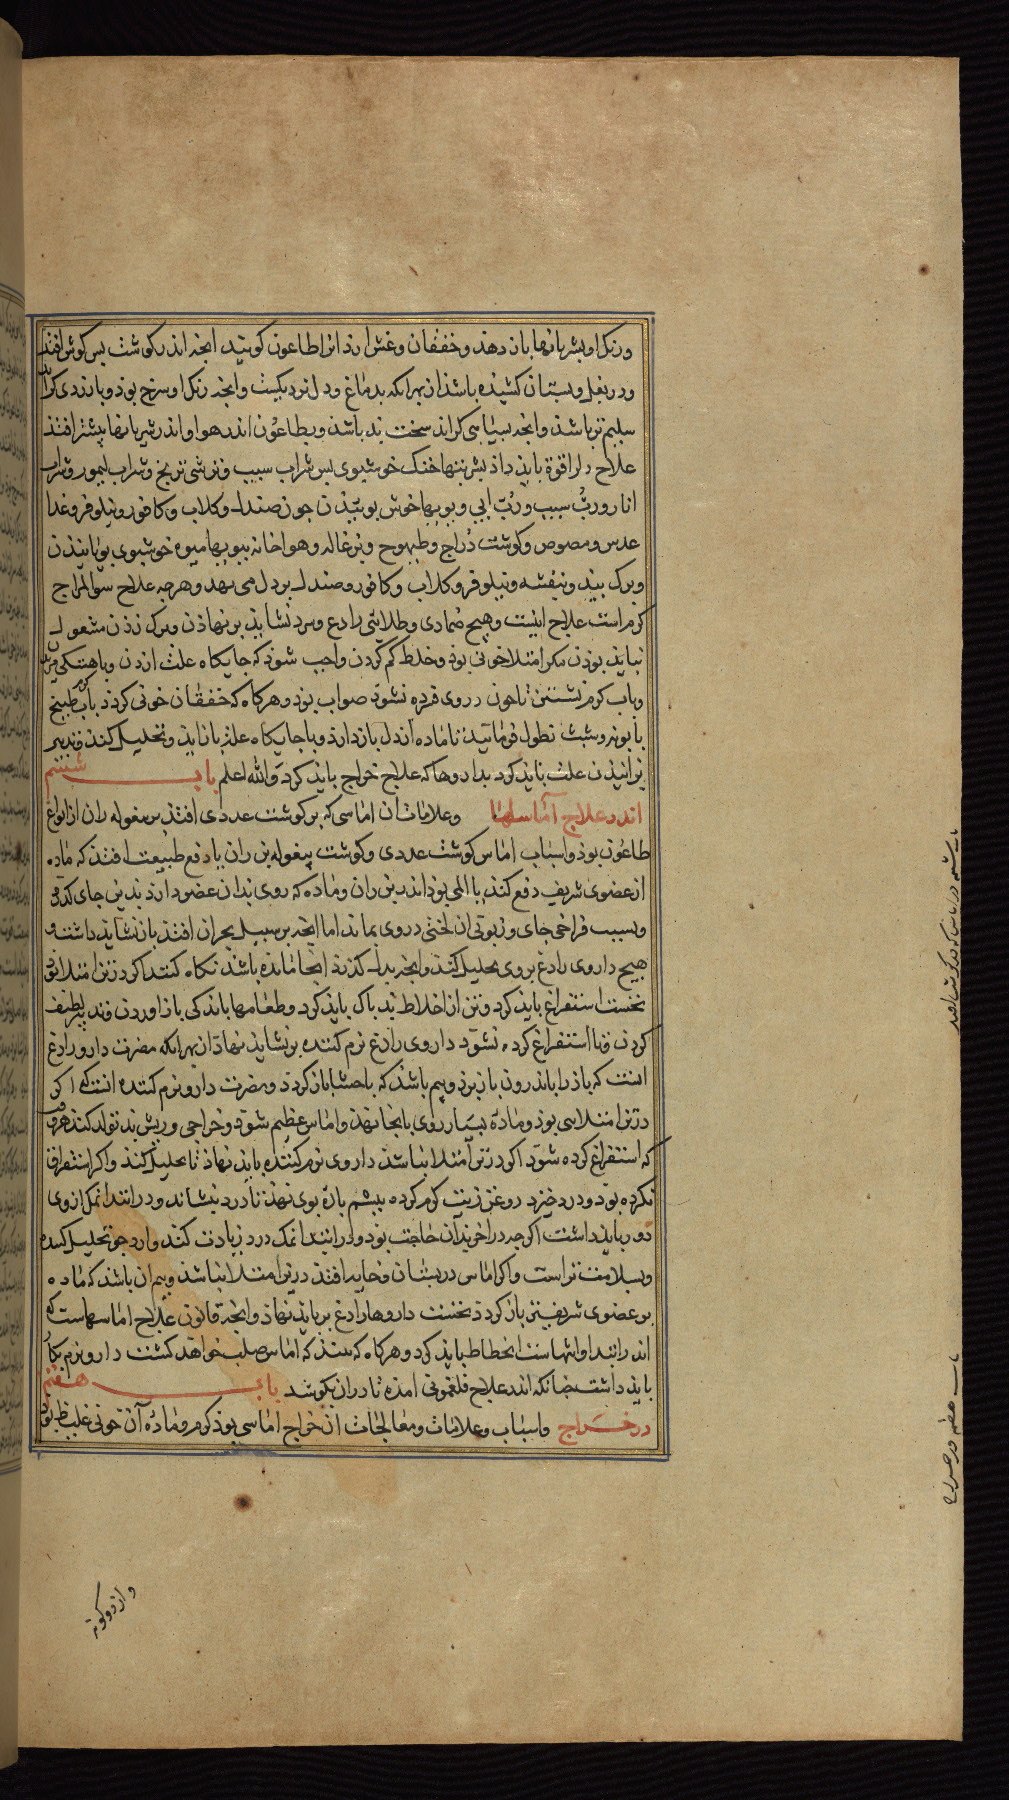 ورنک او بشریانها باز دهد و خفقان و غشی ارد انرا طاعون کویند انجه اندر کوشت بس کوش افتد
ودر بغل و بستان کشیده باشد از بهر انکه بدماغ و دل نزدیکست وانجه رنک او سرخ بود و با زردی کراید
سلیم تر باشد وانجه بسیاهی کراید سخت بد باشد و طاعون اندر هوا و اندر شهر بانها بیشتر افتد
علاج دلرا قوة باید داد بشربتها خنک خوشبوی بس شراب سیب و ترشی ترنج و شراب لیمو و شراب
انار و ربّ سیب و ربّ ابی و بویها خوش بوییذن جون صندل و کلاب و کافور و نیلوفر و غذا
عدس و مصوص و کوشت دُراج و طیهوج و بزغاله و هوا خانه ببویها میوه خوشبوی بویانیذن
و برک بید و بنفشه و نیلوفر و کلاب و کافور و صندل بر دل می نهد و هرجه علاج سوالمزاج
کرم است علاج اینست و هیج ضمادی و طلایی رادع و سرد نشاید بر نهاذن و برک زدن مشغول
نباید بوذن مکر امتلا خونی بوذ و خلط کم کردن واجب شوذ که جایکاه علت ازدن و باهستکی
وباب کرم بشستن تا خون در روی فرده نشود صواب بوذ و هرکاه که خفقان خونی کردد باب طبیخ
بابونه و شبت نطول فرمایید تا ماده از دل باز دارد و با جایکاه علة باز اید و تحلیل کند و تدبیر
برانیذن علت باید کرد بداروها که علاج خراج باید کرد والله اعلم باب ششم
اندر علاج آماسها وعلامات ان اماسی که بر کوشت غددی افتذ بر بیغوله ران از انواع
طاعون بوذ و اسباب اماس کوشت غددی و کوشت بیغوله بن ران یا دفع طبیعت افتذ که ماده
از عضوی شریف دفع کند یا المی بوذ اندر بن ران و ماده که روی بدان عضو دارد بدین جای کذر
وبسبب فراخی جای و زبونی ان لختی در وی بماند اما انجه بر سبیل بحران افتد باز نشاید داشت و
هیج داروی رادع بر وی تحلیل کند وانجه بدل کذرذ انجا مانده باشد نکاه کنند اکر در تن امتلا بوذ
نخست استفراغ باید کرد و تن از اخلاط بد باک باید کرد و طعامها باندکی باز اوردن و تدبیر لطیف
کردن و تا استفراغ کرده نشود داروی رادع نرم کننده بر نشاید نهاذ از بهر انکه مضرت دارو رادع
انست که باز را باندرون باز برد و بیم باشد که باحشا باز کردد و مضرت دارو نرم کننده انست که اکر
در تن امتلایی بوذ و مادة بسیار روی بانجا نهد و اماس عظیم شود و خراجی و ریش بد تولد کند هر وقت
که استفراغ کرده شود اکر در تن امتلا نباشد داروی نرم کننده باید نهاذ تا تحلیل کند و اکر استفراغ
نکرده بود و درد خیزد روغن زیت کرم کرده ببشم باره بوی نهند تا درد بنشاند و در ابتدا نمک از وی
دور باید داشت اکرجه در اخر بدان حاجت بود و در ابتدا نمک درد زیادت کند و ارد جو تحلیل کننده
وبسلامت تر است و اکر اماس در بستان و خایه افتذ در تن امتلا نباشد و بیم ان باشد که ماده
بر عضوی شریفتر باز کردد نخست داروها رادع بر باید نهاذ وانجه قانون علاج اماسهاست که
اندر ابتدا و انتها ست انحطاط باید کرد و هرکاه که بینند که اماس صلب خواهد کشت دارو نرم بکار
باید داشت جنانکه اندر علاج فلغمونی امذه تا در ان بکوشد باب هفتم
در خراج و اسباب و علامات و معالجات ان خراج اماسی بوذ کرم و مادة آن خونی غلیظ بوذ
باب ششم در اماس که در کوشت افتد
باب هفتم در خراج